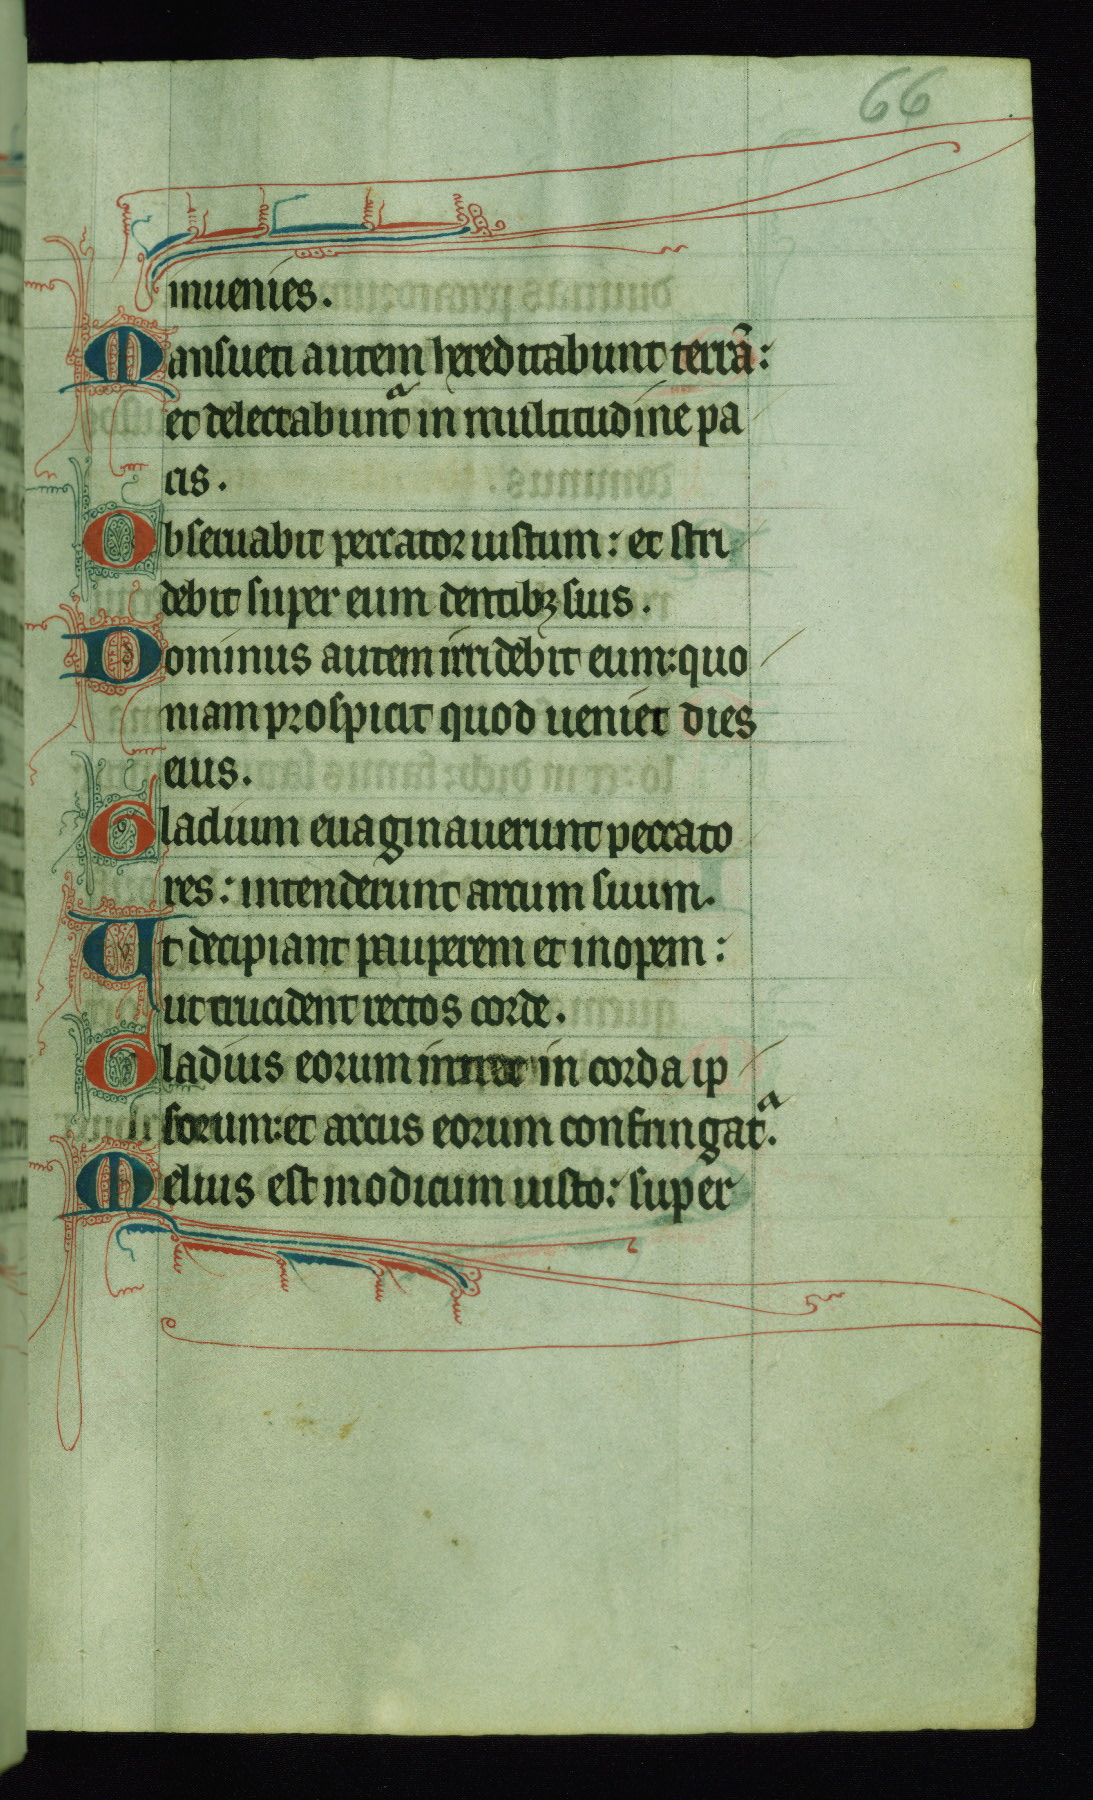 66
inuenies.
Mansueti autem hereditabunt terrā:
et delectabuntᷓ in multitudine pa
cis.
Obseruabit peccator iustum: et stri
debit super eum dentibꝫ suis.
Dominus autem irridebit eum: quo
niam prospicit quod ueniet dies
eius.
Gladium euaginauerunt peccato
res: intenderunt arcum suum.
Ut decipiant pauperem et inopem:
ut trucident rectos corde.
Gladius eorum intret in corda ip
sorum: et arcus eorum confringatᷓ.
Melius est modicum iusto: super